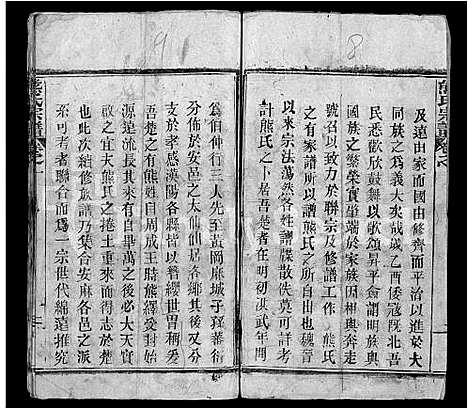 熊氏宗譜
及遠由家而國由修齊而平治以進於大
同族之為義大矣哉歲乙酉倭寇既北吾
民悉歡欣鼓舞以歌頌昇平僉謂明族與
國族之繁榮實肇端於家族因相與奔走
號召以致力於聯宗及修譜工作 熊氏
之有家譜所以譜熊氏之所自出也魏晉
以來宗法蕩然各姓譜牒散佚莫可詳考
計熊氏之卜居吾楚者在明初洪武年間
為伯仲行三人先至黃岡麻城于獐蕃衍
分佈於安邑之大仙仙居各鄉其後又分
之於孝感漢陽各縣皆以簪纓世胄稱考
楚之有熊姓自周成王時熊繹受封始
源遠流長其來有自畢萬之後必大天實
啟之宜熊氏之捲土重來而得志於楚也
此次續修族譜乃集合安麻各邑之派
系可考者聯合而爲一宗世代綿遠推究
熊氏宗譜